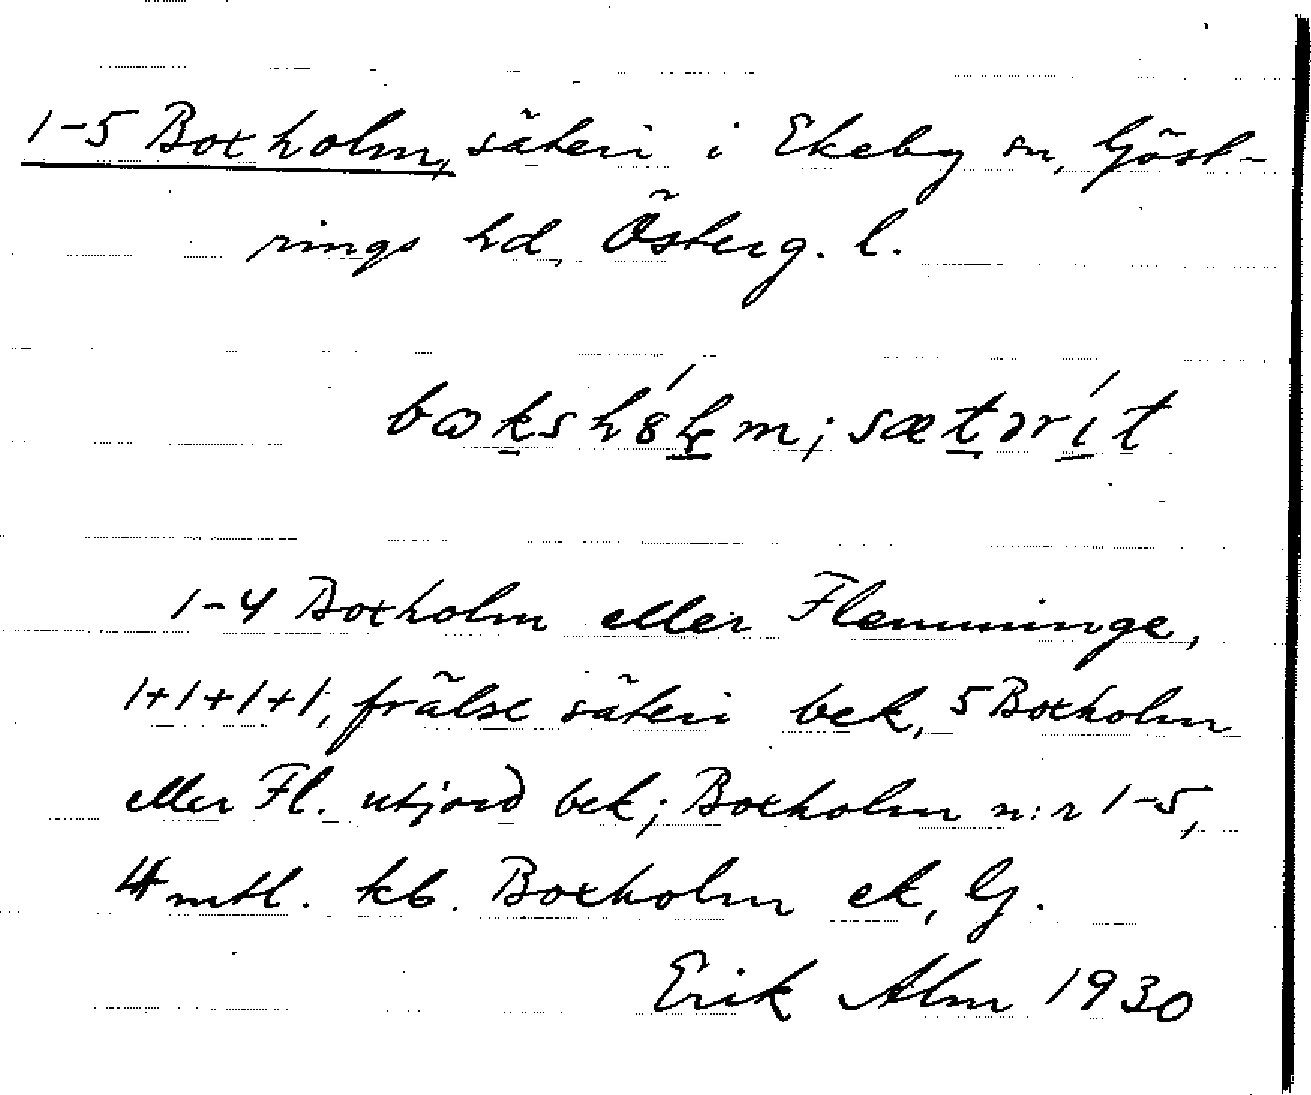 1-5 Boxholm, säteri i Ekeby sn, Göst-
rings hd, Österg. l.
bɷksh8́lm; sætərít
1-4 Boxholm eller Flemminge,
1+1+1+1, frälse säteri bek, 5 Boxholm
eller Fl. utjord bek; Boxholm n:r 1-5,
4 mtl. kb. Boxholm ek, G.
Erik Alm 1930